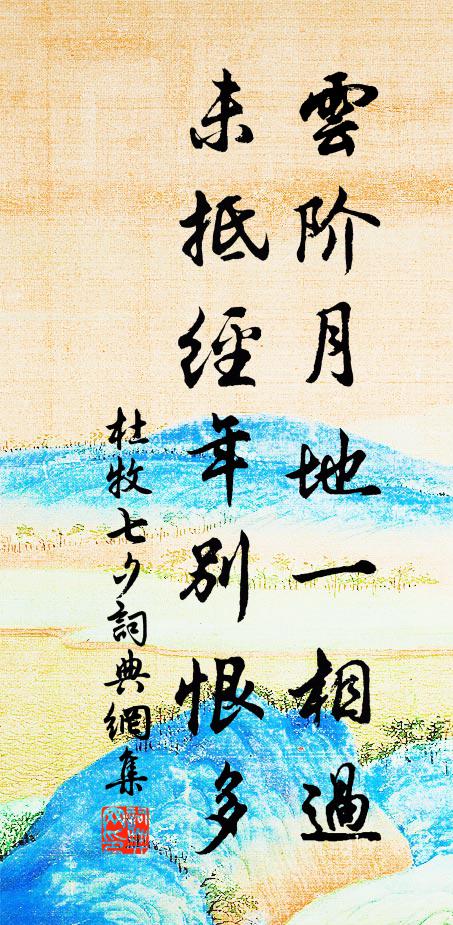 雲阶月地一相過
未抵經年别恨多
杜牧七夕詞典網集